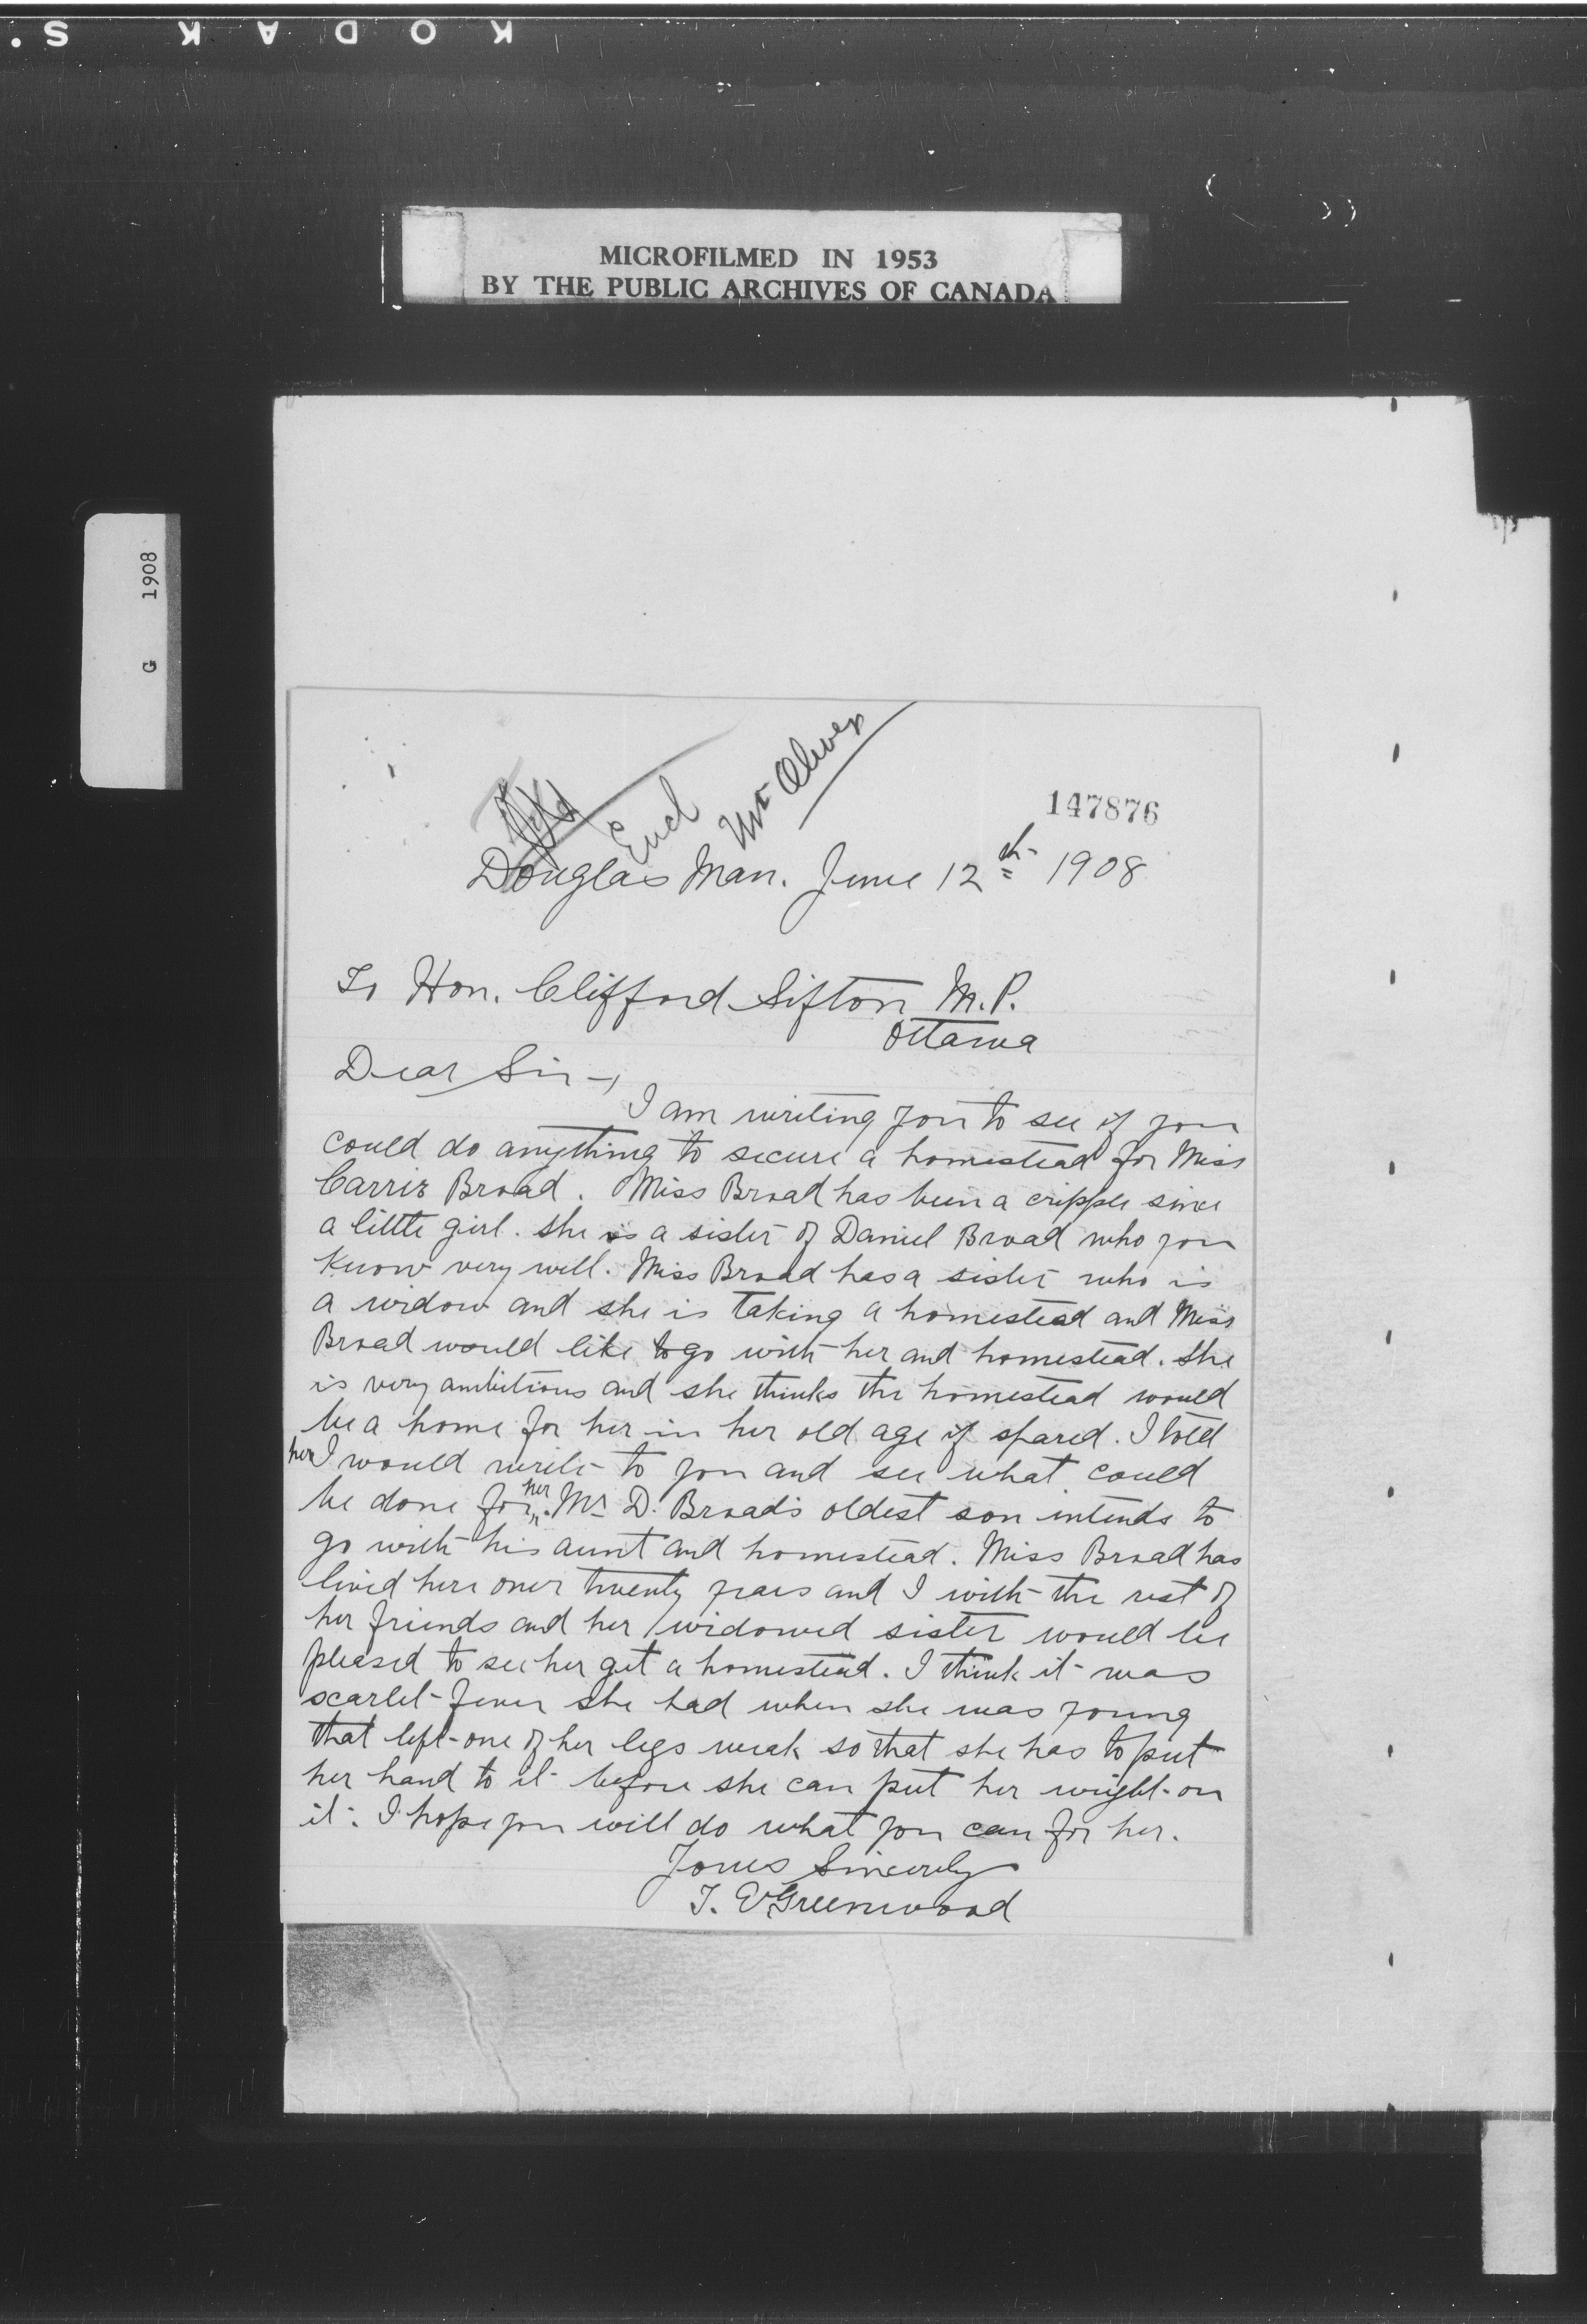 KODAK S.
MICROFILMED IN 1953
BY THE PUBLIC ARCHIVES OF CANADA
G 1908
Encl
Mr Oliver
147876
Douglas Man. June 12th 1908
To Hon. Clifford Sifton M.P.
Ottawa
Dear Sir -,
I am writing you to see if you
could do anything to secure a homestead for Miss
Carrie Broad. Miss Broad has been a cripple since
a little girl. she is a sister of Daniel Broad who you
know very well. Miss Broad has a sister who is
a widow and she is taking a homestead and Miss
Broad would like to go with her and homestead. She
is very ambitious and she thinks the homestead would
be a home for her in her old age if spared. I told
her I would write to you and see what could
be done for her. Mr D. Broad's oldest son intends to
go with his aunt and homestead. Miss Broad has
lived here over twenty years and I with the rest of
her friends and her widowed sister would be
pleased to see her get a homestead. I think it was
scarlet-fever she had when she was young
that left one of her legs weak so that she has to put
her hand to it before she can put her weight on
it. I hope you will do what you can for her.
Yours Sincerely
T. E. Greenwood